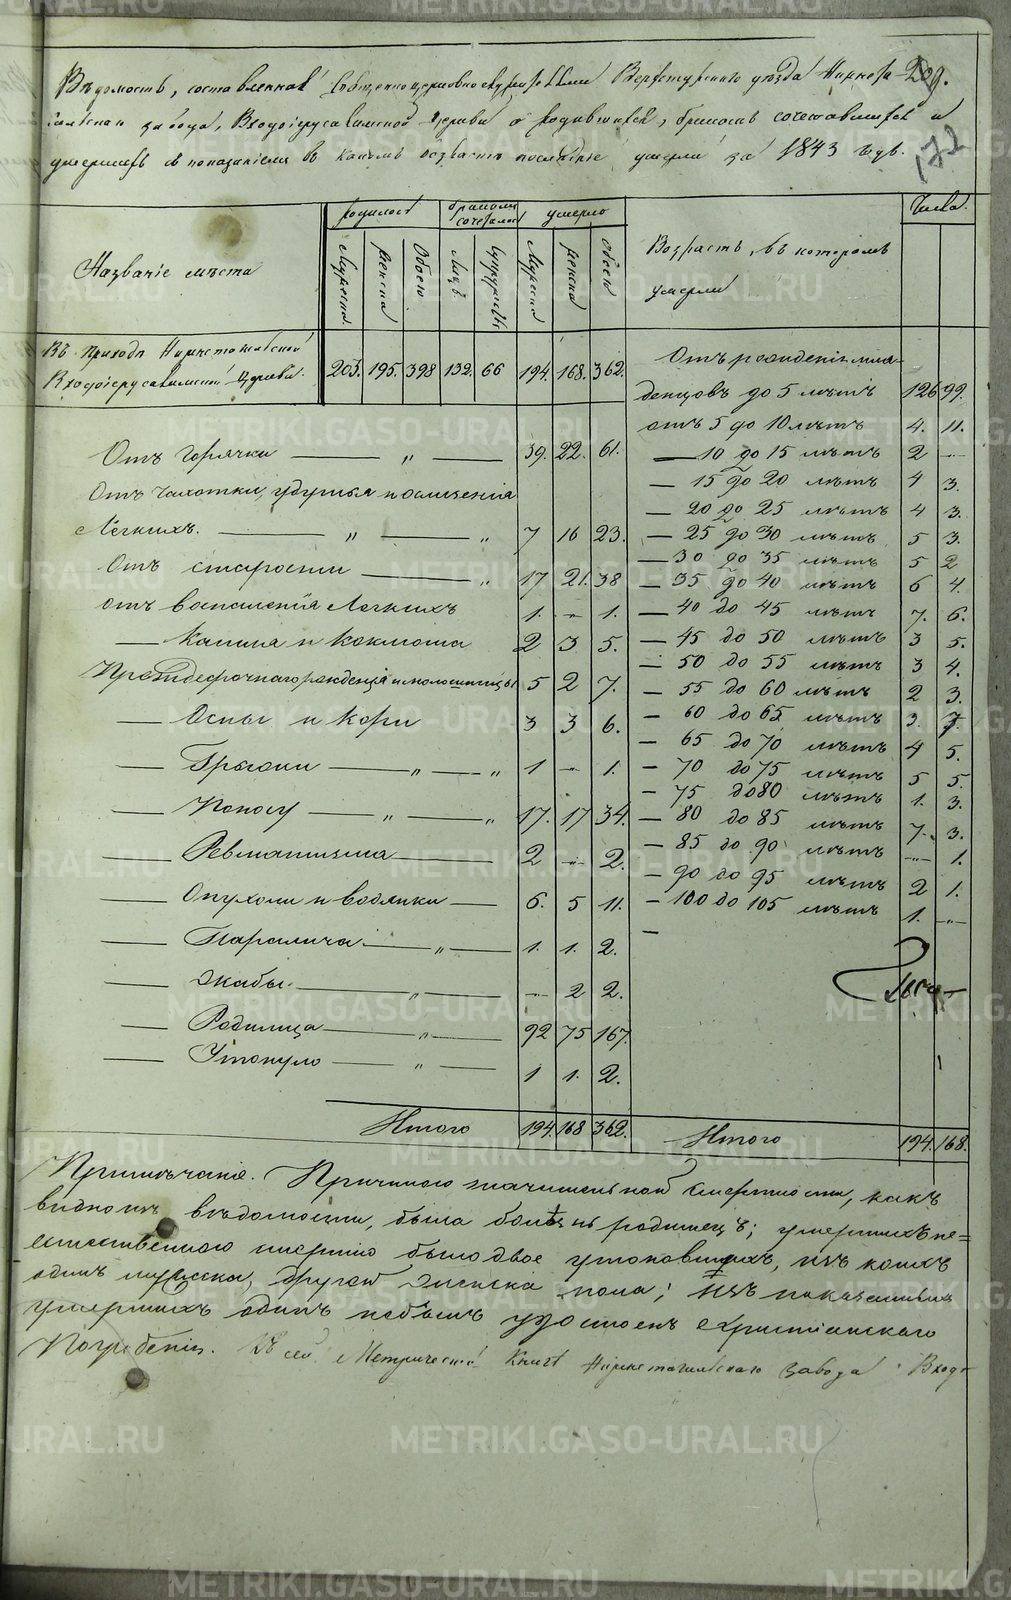 Вѣдомость, составленная Священноцерковнослужителями Верхотурскаго уѣзда Нижнета- 209.
гильскаго завода, Входоіерусалимской Церкви о родившихся, бракомъ сочетавшихся и
умершихъ съ показаніемъ въ какомъ возрастѣ послѣдніе умерли за 1843 годъ.
172
Названіе мѣста
родилось
бракомъ сочеталось
умерло
Мужеска
женска
Обоего
Лицъ
Супружествъ
Мужеска
женска
обоего
Возрастъ, въ которомъ
умерли
Число.
Въ приходѣ Нижнетагильской
Входоіерусалимской Церкви. 203. 195. 398 132. 66 194. 168. 362.
Отъ рожденія мла-
денцовъ до 5 лѣтъ 126 99.
отъ 5 до 10 лѣтъ 4. 11.
— 10 до 15 лѣтъ 2 —
— 15 до 20 лѣтъ 4 3.
— 20 до 25 лѣтъ 4 3.
— 25 до 30 лѣтъ 5 3.
— 30 до 35 лѣтъ 5 2
— 35 до 40 лѣтъ 6 4.
— 40 до 45 лѣтъ 7. 6.
— 45 до 50 лѣтъ 3 5.
— 50 до 55 лѣтъ 3 4.
— 55 до 60 лѣтъ 2 3.
— 60 до 65 лѣтъ 3.
— 65 до 70 лѣтъ 4 5.
— 70 до 75 лѣтъ 5 5.
— 75 до 80 лѣтъ 1. 3.
— 80 до 85 лѣтъ 7. 3.
— 85 до 90 лѣтъ „ 1.
— 90 до 95 лѣтъ 2 1.
— 100 до 105 лѣтъ 1. „
Отъ горячки — „ — 39. 22. 61.
Отъ чахотки, удушья и
Легкихъ. — „ — „ 7 16 23.
Отъ старости — „ 17 21. 38
отъ воспаленія Легкихъ 1. „ 1.
— Кашля и коклюша 2 3 5.
рожденія и молошницы 5 2 7.
— Оспы и кори 3 3 6.
— Грыжи — „ — „ 1 „ 1.
— Поносу — „ — „ 17. 17 34.
— Ревматизма — 2 „ 2.
— Опухоли и водянки — 6. 5 11.
— Паралича — „ — 1. 1. 2.
— Жабы — „ — 2 2.
— Родимца — „ — 92 75 167.
— Утонуло — „ — 1 1. 2.
Итого 194. 168 362.
Итого 194. 168.
Примѣчаніе. Причиною значительной смертности, какъ
видно изъ вѣдомости, была болѣзнь родимецъ; умершихъ не=
естественною смертію было двое утонувшихъ, изъ коихъ
одинъ мужеска, другой женска пола; изъ показанныхъ
умершихъ одинъ небылъ удостоенъ христіанскаго
Погребенія. Къ сей Метрической Книгѣ Нижнетагильскаго завода Входо-
METRIKI.GASO-URAL.RU